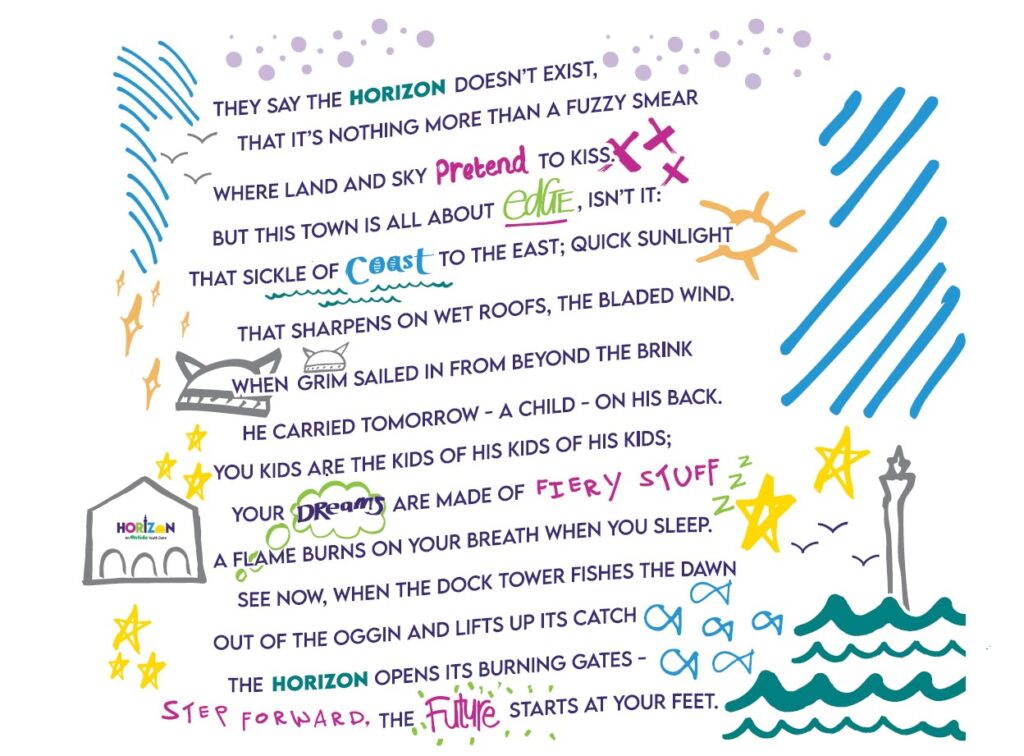 THEY SAY THE HORIZON DOESN'T EXIST,
THAT IT'S NOTHING MORE THAN A FUZZY SMEAR
WHERE LAND AND SKY Pretend TO KISS.
BUT THIS TOWN IS ALL ABOUT edGE, ISN'T IT:
THAT SICKLE OF Coast TO THE EAST; QUICK SUNLIGHT
THAT SHARPENS ON WET ROOFS, THE BLADED WIND.
WHEN GRIM SAILED IN FROM BEYOND THE BRINK
HE CARRIED TOMORROW - A CHILD - ON HIS BACK.
YOU KIDS ARE THE KIDS OF HIS KIDS OF HIS KIDS;
YOUR DReams ARE MADE OF FIERY STUFF
zzz
A FLAME BURNS ON YOUR BREATH WHEN YOU SLEEP.
HORIZON
An OnSide Youth Zone
SEE NOW, WHEN THE DOCK TOWER FISHES THE DAWN
OUT OF THE OGGIN AND LIFTS UP ITS CATCH
THE HORIZON OPENS ITS BURNING GATES -
STEP FORWARD, THE Future STARTS AT YOUR FEET.